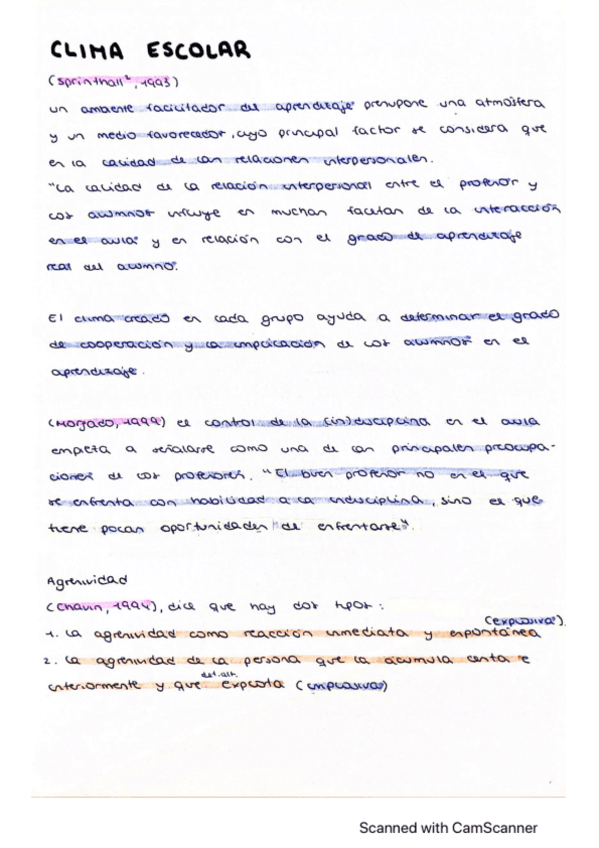 CLIMA ESCOLAR
(Sprinthall², 1993)
un ambiente facilitador del aprendizaje presupone una atmósfera
y un medio favorecedor, cuyo principal factor se considera que
es la calidad de las relaciones interpersonales.
"La calidad de la relación interpersonal entre el profesor y
los alumnos influye en muchas facetas de la interacción
en el aula y en relación con el grado de aprendizaje
real del alumno".
El clima creado en cada grupo ayuda a determinar el grado
de cooperación y la implicación de los alumnos en el
aprendizaje.
(Morgado, 1999) el control de la (in)disciplina en el aula
empieza a señalarse como una de las principales preocupa-
ciones de los profesores. "El buen profesor no es el que
se enfrenta con habilidad a la indisciplina, sino el que
tiene pocas oportunidades de enfrentarse".
Agresividad
(Chauin, 1994), dice que hay dos tipos:
(explosiva)
1. La agresividad como reacción inmediata y espontánea
2. La agresividad de la persona que la acumula lenta e
interiormente y que explota (implosiva)
Scanned with CamScanner